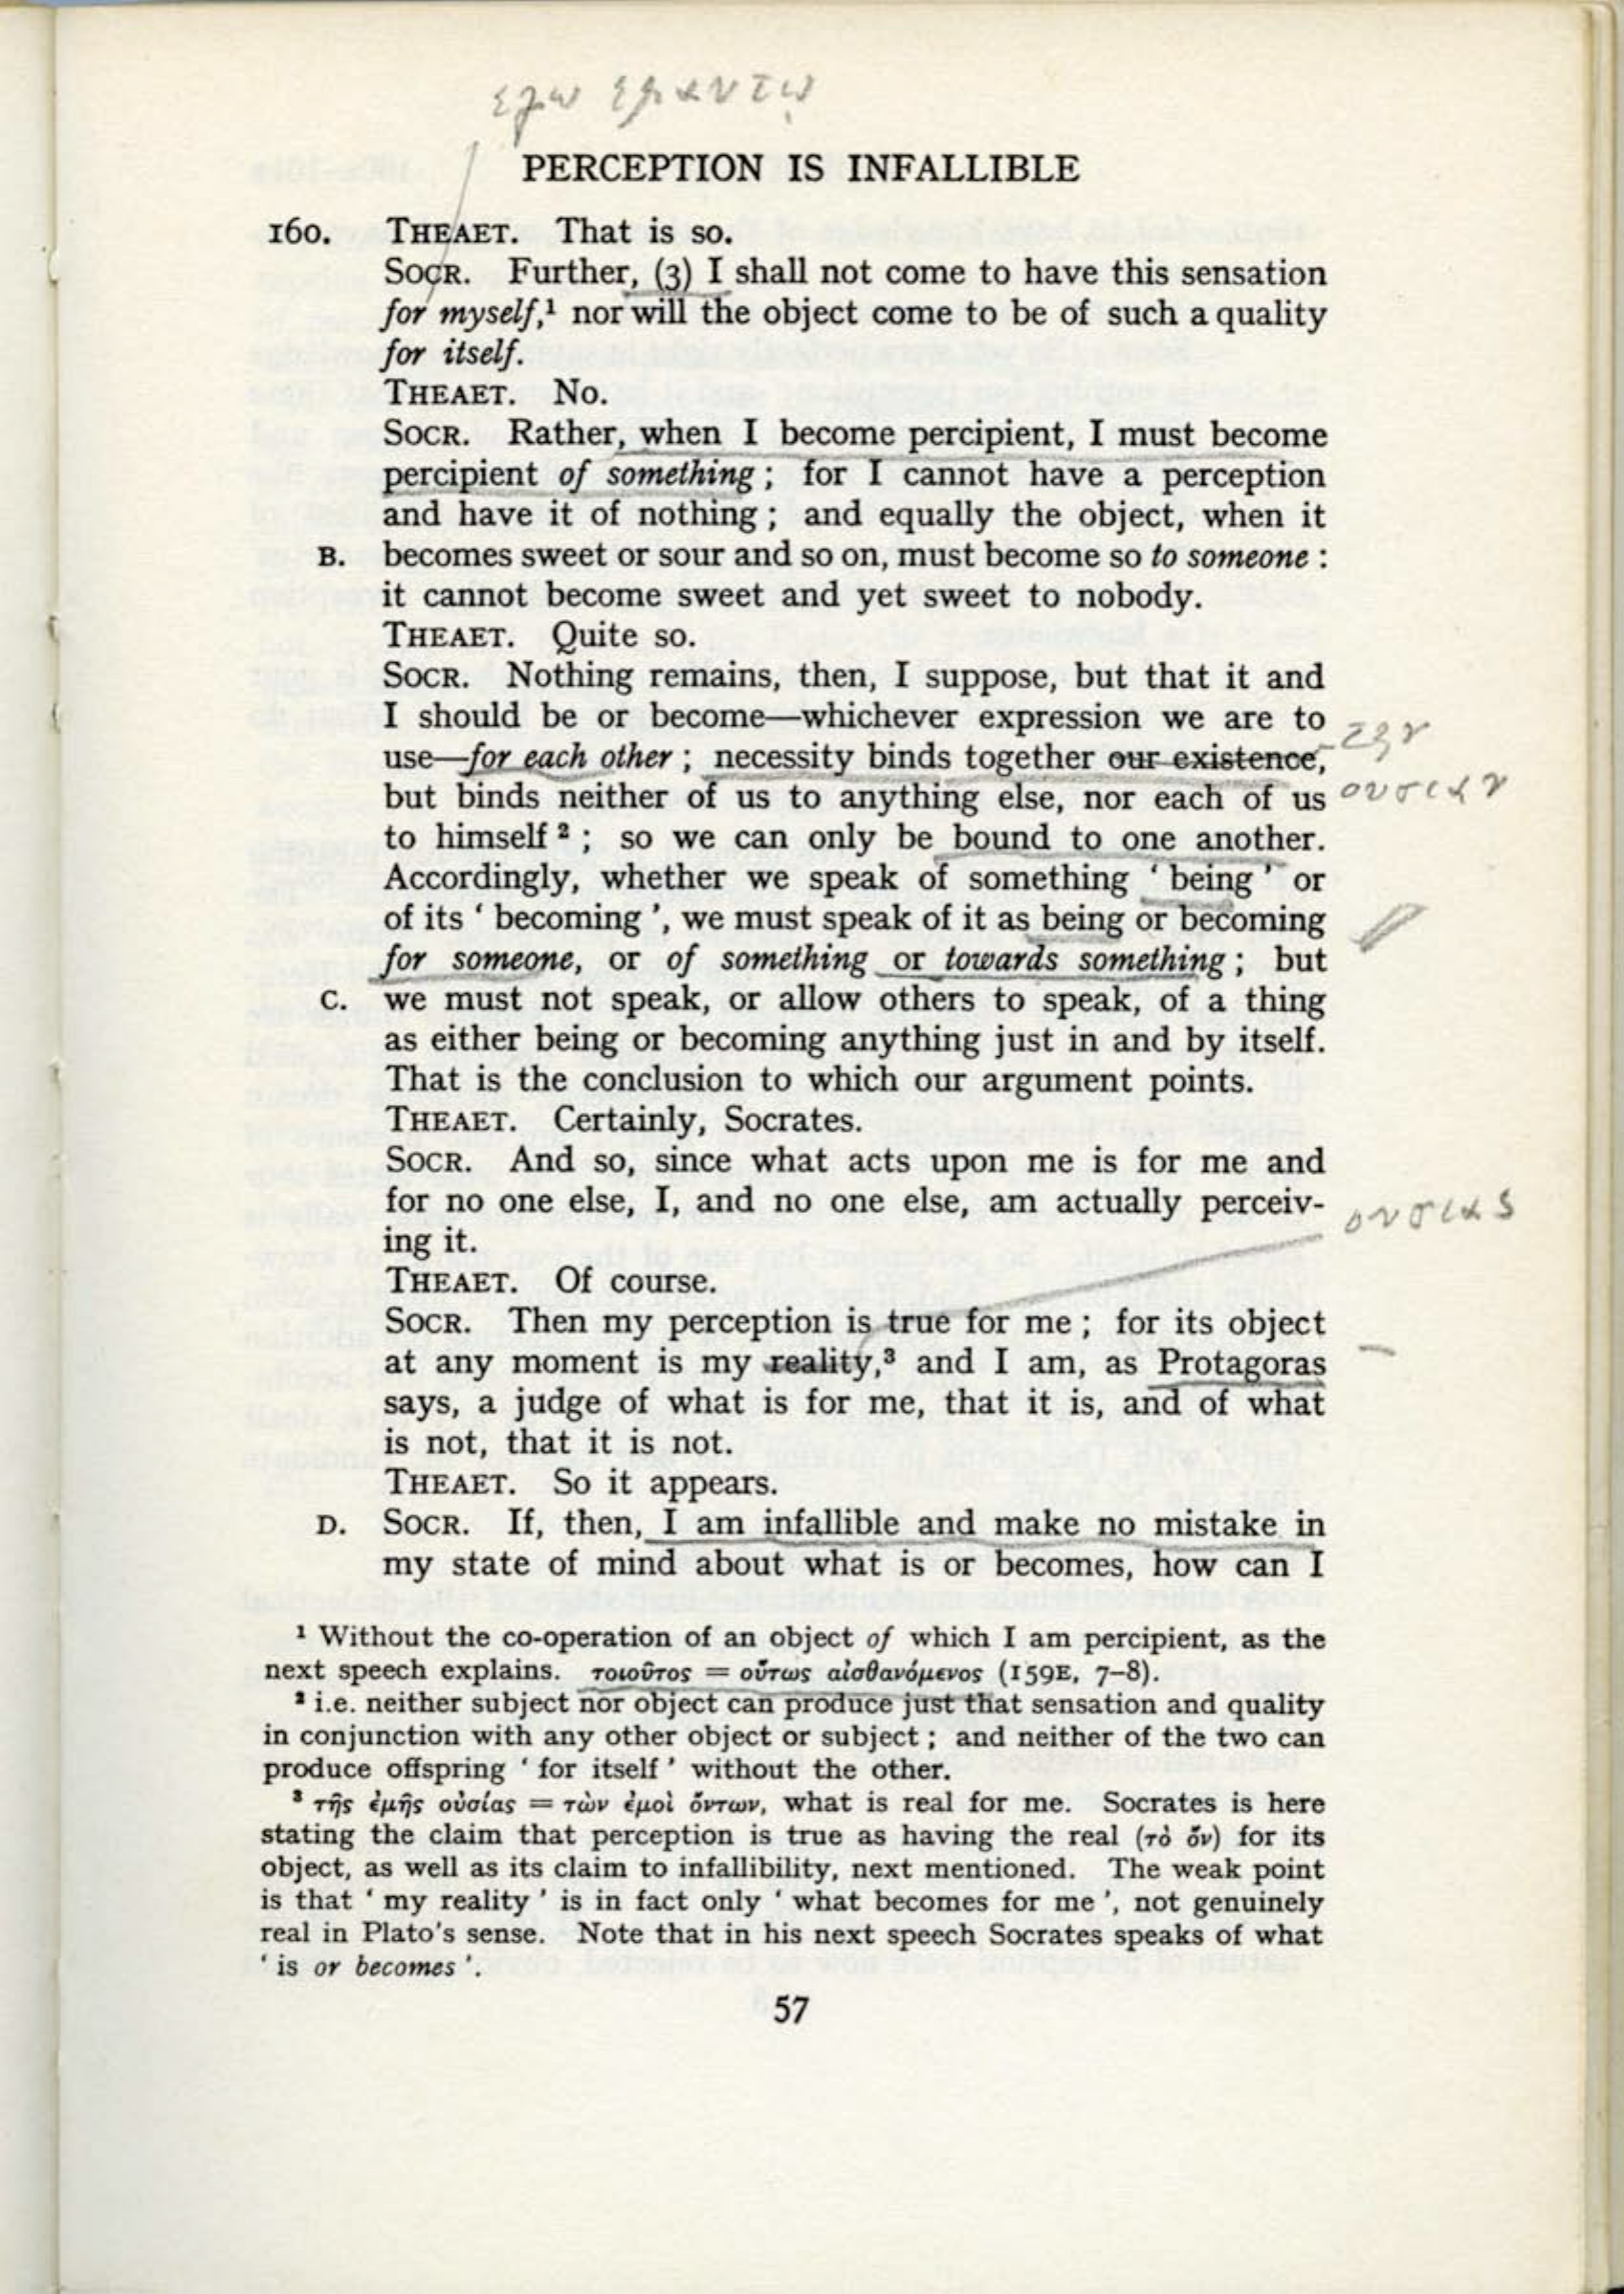 εγω εμαυτῳ
PERCEPTION IS INFALLIBLE
160. THEAET. That is so.
SOCR. Further, (3) I shall not come to have this sensation
for myself,¹ nor will the object come to be of such a quality
for itself.
THEAET. No.
SOCR. Rather, when I become percipient, I must become
percipient of something; for I cannot have a perception
and have it of nothing; and equally the object, when it
B. becomes sweet or sour and so on, must become so to someone:
it cannot become sweet and yet sweet to nobody.
THEAET. Quite so.
SOCR. Nothing remains, then, I suppose, but that it and
I should be or become—whichever expression we are to
use—for each other; necessity binds together our existence, την
but binds neither of us to anything else, nor each of us ουσιαν
to himself²; so we can only be bound to one another.
Accordingly, whether we speak of something ‘being’ or
of its ‘becoming’, we must speak of it as being or becoming
for someone, or of something or towards something; but
C. we must not speak, or allow others to speak, of a thing
as either being or becoming anything just in and by itself.
That is the conclusion to which our argument points.
THEAET. Certainly, Socrates.
SOCR. And so, since what acts upon me is for me and
for no one else, I, and no one else, am actually perceiv- ουσιας
ing it.
THEAET. Of course.
SOCR. Then my perception is true for me; for its object
at any moment is my reality,³ and I am, as Protagoras
says, a judge of what is for me, that it is, and of what
is not, that it is not.
THEAET. So it appears.
D. SOCR. If, then, I am infallible and make no mistake in
my state of mind about what is or becomes, how can I
¹ Without the co-operation of an object of which I am percipient, as the
next speech explains. τοιοῦτος = οὕτως αἰσθανόμενος (159E, 7–8).
² i.e. neither subject nor object can produce just that sensation and quality
in conjunction with any other object or subject; and neither of the two can
produce offspring ‘for itself’ without the other.
³ τῆς ἐμῆς οὐσίας = τῶν ἐμοὶ ὄντων, what is real for me. Socrates is here
stating the claim that perception is true as having the real (τὸ ὄν) for its
object, as well as its claim to infallibility, next mentioned. The weak point
is that ‘my reality’ is in fact only ‘what becomes for me’, not genuinely
real in Plato's sense. Note that in his next speech Socrates speaks of what
‘is or becomes’.
57